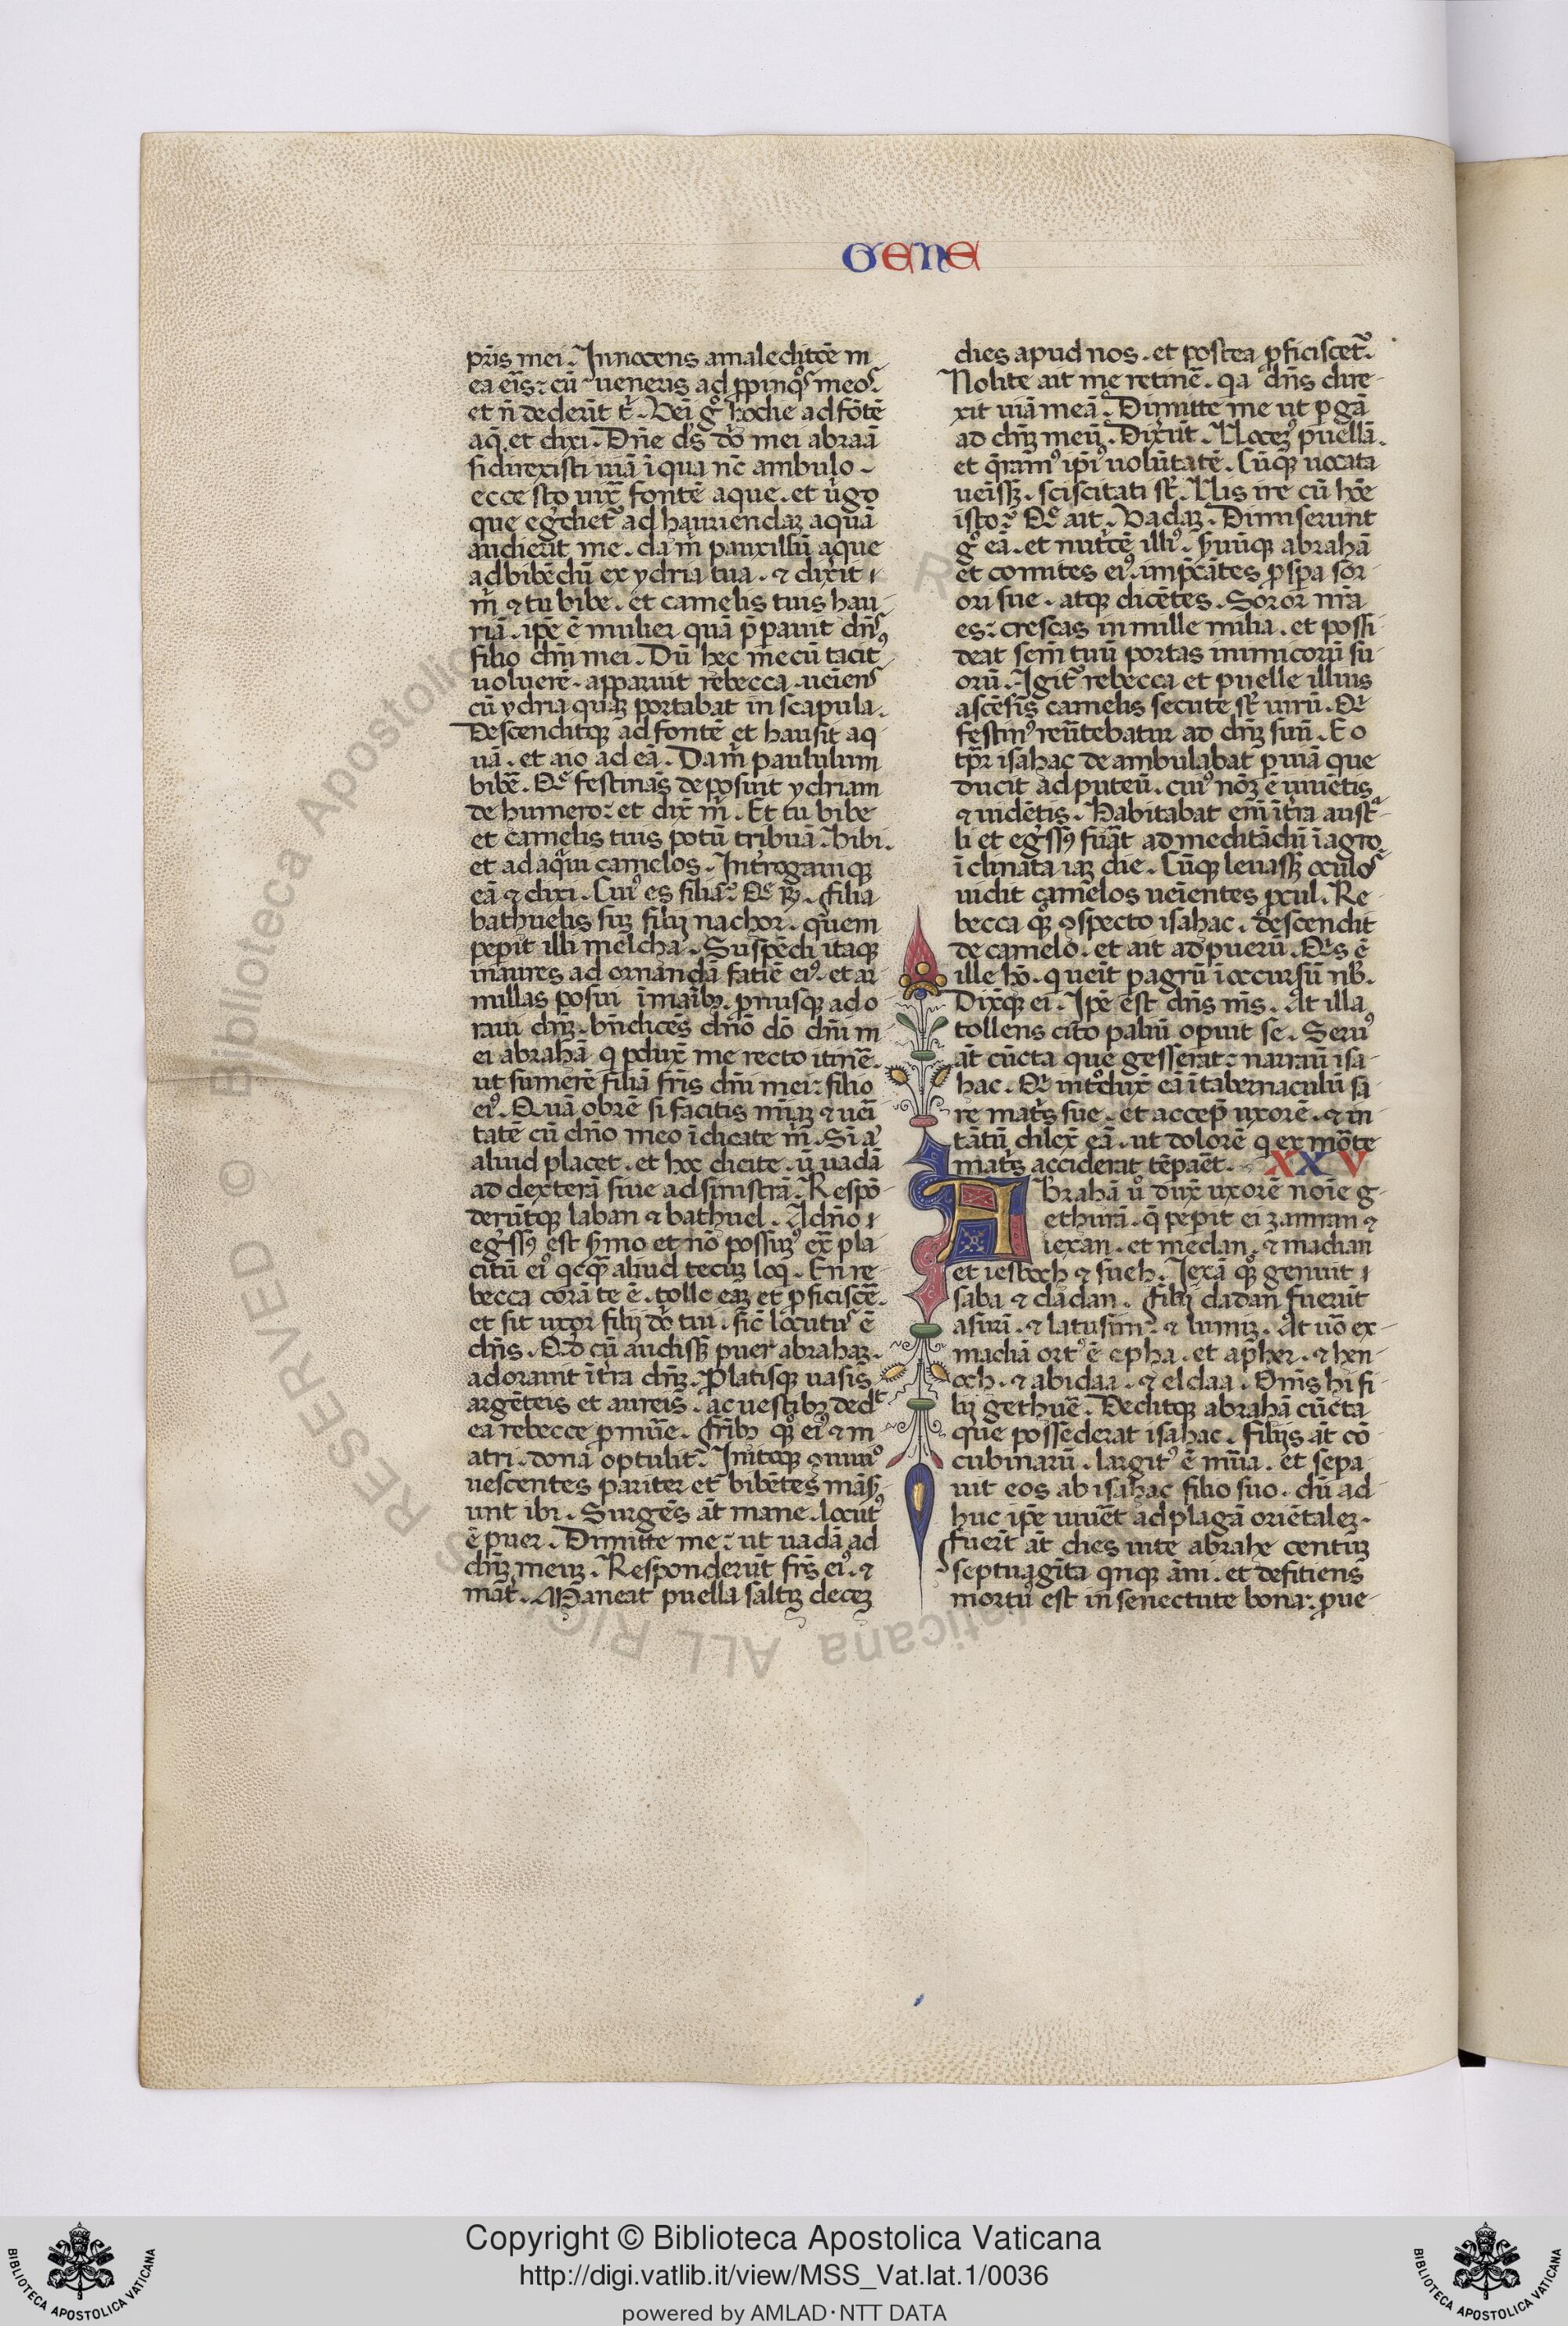 GENE
pr̃is mei. Innocens a maledictõe m
ea er̃is: cũ ueneris ad ꝓpinqͦs meos.
et ñ dederĩt t̾. Veĩ gͦ hodie ad fõtẽ
aq̃. et dixi. Dñe ds̃ dõ mei abraã
si direxisti uiã ĩ qua nc̃ ambulo.
ecce sto iux̃ fontẽ aque. et ũgo
que egrediet̃ ad hauriendaʒ aquã
audierit me. da m̃ pauxillũ aque
ad bibẽdũ ex ydria tua. ⁊ dix̾it
m̃ ⁊ tu bibe. et camelis tuis hau
riã. ip̃e ẽ mulier quã p̃parauit dñs
filio dñi mei. Dũ hec mecũ tacitꝰ
uoluerẽ. apparuit rebecca ueĩens
cũ ydria quaʒ portabat in scapula.
Descenditqʒ ad fontẽ et hausit aq
uã. et aio ad eã. Da m̃ paululum
bibẽ. Que festinãs deposuit ydriam
de humero: et dix̃ m̃. Et tu bibe
et camelis tuis potũ tribuã. Bibi.
et adaq̃uit camelos. Int̾rogauiqʒ
eã ⁊ dixi. Cuiꝰ es filia? Que r̃. Filia
bathuelis suʒ filij nachor. quem
peꝑit illi melcha. Suspẽdi itaqʒ
inaures ad ornandã fatiẽ eiꝰ. et ar
millas posui ĩ maĩbʒ. pronusqʒ ado
raui dñʒ. bñdicẽs dñõ dõ dñi m
ei abrahã q ꝑdux̃ me recto itinẽ.
ut sumerẽ filiã fr̃is dñi mei: filio
eiꝰ. Quã obrẽ si facitis mĩaʒ ⁊ ueĩ
tatẽ cũ dño meo ĩdicate m̃. Sĩ a
aliud placet. et hoc dicite. ũ uadã
ad dexterã siue ad sinistrã. Respõ
derũtqʒ laban ⁊ bathuel. A dño
egr̃ssꝰ est s̾mo et nõ possũꝰ ex̃ pla
citũ eiꝰ qcqʒ aliud tecuʒ loq. En re
becca corã te ẽ. tolle eaʒ et ꝓficiscẽ.
et sit uxor filij dõ tui. sic̃ locutꝰ ẽ
dñs. Qd̃ cũ audissʒ puer abrahaʒ.
adorauit ĩ t̾ra dñʒ. Prolatisqʒ uasis
argẽteis et aureis. ac uestibʒ dedᵗ
ea rebecce ꝓ mũe. Fr̃ibʒ qͦʒ eiꝰ ⁊ m
atri. dona optulit. Initoqʒ ꝯuiuio
uescentes pariter et bibẽtes mãs̾
unt ibi. Surgẽs aũt mane. locutꝰ
ẽ puer. Dimitte me: ut uadã ad
dñʒ meuʒ. Responderũt fr̃s eiꝰ. ⁊
mat̾. Maneat puella saltʒ deceʒ
dies apud nos. et postea ꝓficiscet̃.
Nolite ait me retinẽ. qa dñs dire
xit uiã meã. Dimitte me ut ꝑgã
ad dñʒ meũ. Dixer̃ũt. Uoceꝰ puellã.
et q̃ramꝰ ip̃iꝰ uolũtatẽ. Cũqʒ uocata
ueĩssʒ. sciscitati st̃. Uis ire cũ hõe
isto? Que ait. Vadaʒ. Dimiserunt
gͦ eã. et nut̾cẽ illiꝰ. s̾uũqʒ abrahã
et comites eiꝰ. imꝑcãtes ꝓspa sor
ori sue. atqʒ dicẽtes. Soror nr̃a
es: crescas in mille milia. et possi
deat sem̃ tuũ portas inimicorũ su
orũ. Igit̃ rebecca et puelle illius
ascẽsis camelis secute st̃ uirũ. Qui
festinꝰ reũtebatur ad dñʒ suũ. Eo
tp̃r isahac deambulabat ꝑ uiã que
ducit ad puteũ. cuiꝰ nõʒ ẽ uiuẽtis
⁊ uidẽtis. Habitabat em̃ ĩ t̾ra aust
li et egr̃ssꝰ fũat ad meditãdũ ĩ agro
ĩclinata iaʒ die. Cũqʒ leuassʒ oculos
uidit camelos ueĩentes ꝓcul. Re
becca qͦʒ ꝯspecto isahac. descendit
de camelo. et ait ad puerũ. Quis ẽ
ille hõ. q ueĩt ꝑ agrũ ĩ occursũ nb̃.
Dix̃qʒ ei. Ip̃e est dñs m̃s. At illa
tollens cito paliũ opuit se. Seruꝰ
aũt cũcta que gesserat: narrauĩ isa
hac. Qui int̾dux̃ eã ĩ tabernaculũ sa
re mat̾s sue. et accep̃ uxorẽ. ⁊ in
tãtũ dilex̃ eã. ut dolorẽ q ex mõte
mat̾s acciderat tẽꝑaẽt. XXV
Abrahã ũo dux̃ uxorẽ noĩe g
ethurã. q̃ peꝑit ei zamran ⁊
iexan. et medan. ⁊ madian
et iesboch ⁊ sueh. Iexã qͦʒ genuit
saba ⁊ dadan. Filij dadan fuerũt
asurĩ. ⁊ latusim. ⁊ lumiʒ. At uõ ex
madiã ortꝰ ẽ epha. et apher. ⁊ hen
och. ⁊ abidaa. ⁊ eldaa. Om̃s hi fi
lij gethurẽ. Deditqʒ abrahã cũcta
que possederat isahac. filijs aũt cõ
cubinarũ. largitꝰ ẽ mũa. et sepa
uit eos ab isahac filio suo. dũ ad
huc ip̃e uiuẽt ad plagã oriẽtaleʒ.
Fuerũt aũt dies uite abrahe centuʒ
septuagĩta qnqʒ ãni. et defitiens
mortuꝰ est in senectute bona: ꝓue
Copyright © Biblioteca Apostolica Vaticana
http://digi.vatlib.it/view/MSS_Vat.lat.1/0036
powered by AMLAD·NTT DATA
BIBLIOTECA APOSTOLICA VATICANA
BIBLIOTECA APOSTOLICA VATICANA